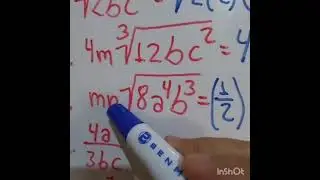 √12bc = √2(2
4m ∛12bc² = 4
mn √8a⁴b³ = (1/2)
4a/3bc
BENM
InShOt